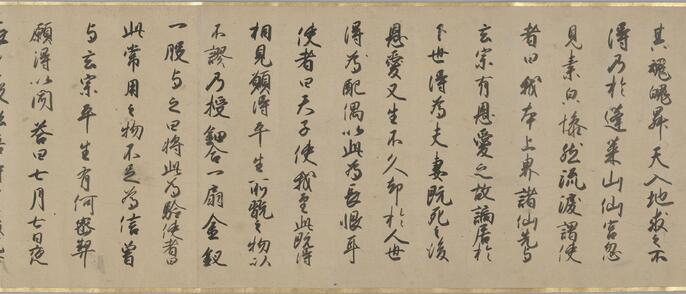 其魂魄昇天入地求之不
得乃於蓬萊山仙宮忽
見素皃慘然流淚謂使
者曰我本上界諸仙先与
玄宗有恩愛之故謫居於
下世得為夫妻既死之後
恩愛又生不久却於人世
得為配偶以此為長恨耳
使者曰天子使我至此既得
相見願得平生所翫之物以
不謬乃授鈿合一扇金釵
一股与之曰將此為驗使者曰
此常用之物不足為信曾
与玄宗平生有何密契
願得以聞答曰七月七日夜